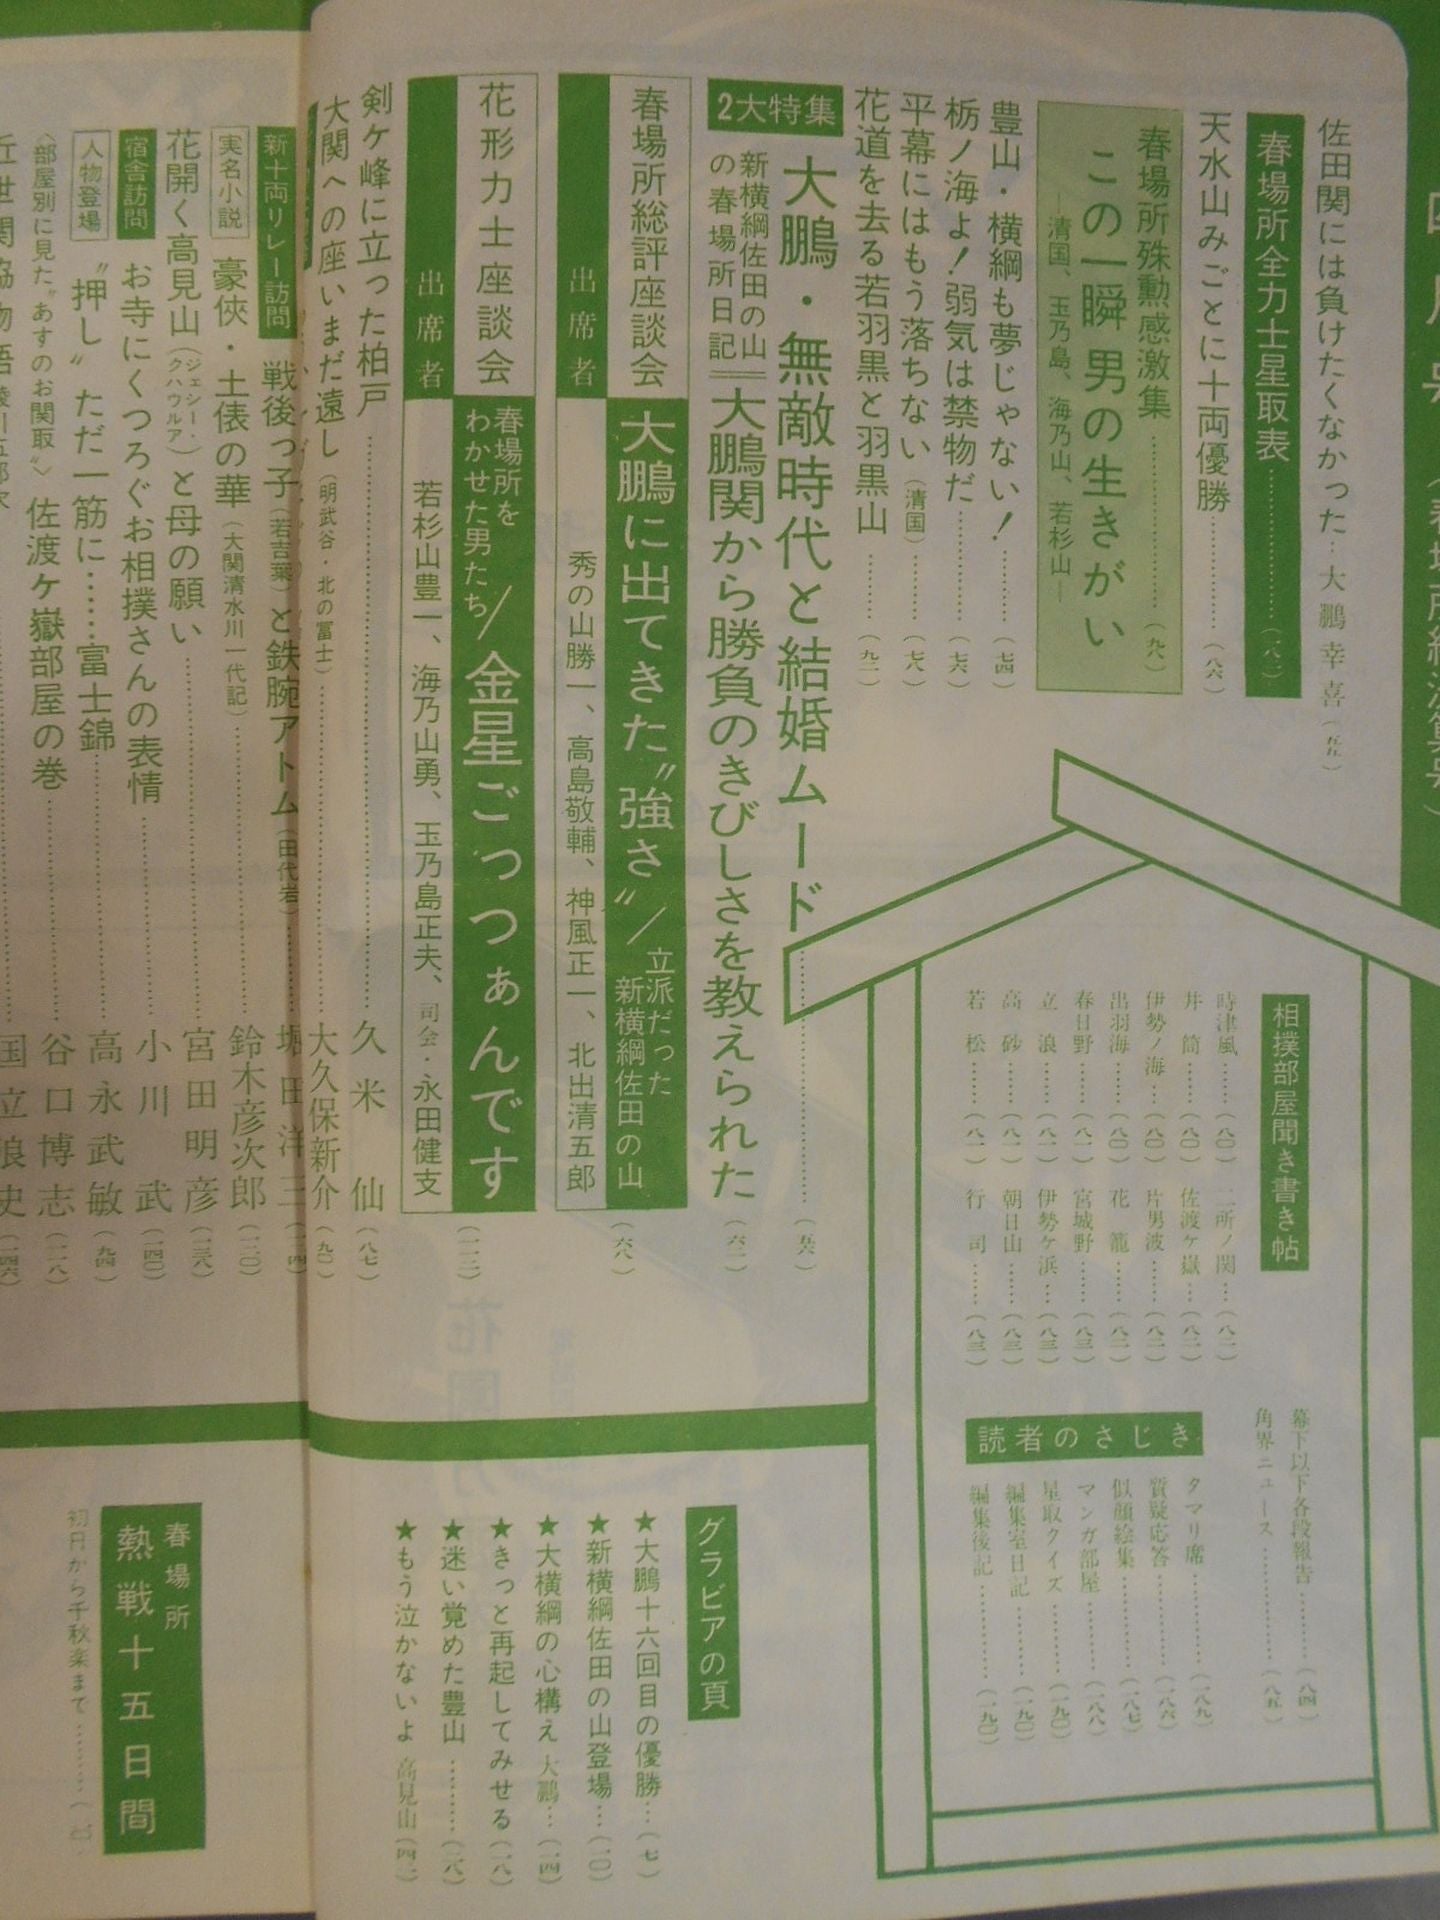 佐田関には負けたくなかった…大鵬幸喜
春場所全力士星取表…………(八八)
天水山みごとに十両優勝…………(八六)
春場所殊勲感激集…………(九八)
この一瞬 男の生きがい
―清国、玉乃島、海乃山、若杉山―
豊山・横綱も夢じゃない!…………(七四)
栃ノ海よ!弱気は禁物だ…………(七六)
平幕にはもう落ちない(清国)…………(七八)
花道を去る若羽黒と羽黒山…………(九二)
2大特集
大鵬・無敵時代と結婚ムード…………(五六)
新横綱佐田の山の春場所日記=大鵬関から勝負のきびしさを教えられた(六二)
春場所総評座談会
大鵬に出てきた〝強さ〟/立派だった新横綱佐田の山(六八)
出席者
秀の山勝一、高島敬輔、神風正一、北出清五郎
花形力士座談会
春場所をわかせた男たち/金星ごっつぁんです(一二二)
出席者
若杉山豊一、海乃山勇、玉乃島正夫、司会・永田健支
剣ケ峰に立った柏戸…………久米仙(八七)
大関への座いまだ遠し(明武谷・北の冨士)…………大久保新介(九〇)
新十両リレー訪問
戦後っ子(若吉葉)と鉄腕アトム(田代岩)…………堀田洋三
実名小説
豪俠・土俵の華(大関清水川一代記)…………鈴木彦次郎(一二〇)
花開く高見山(ジェシー・クハウルア)と母の願い…………宮田明彦(一三八)
宿舎訪問
お寺にくつろぐお相撲さんの表情…………小川武(一四〇)
人物登場
〝押し〟ただ一筋に……富士錦…………高永武敏(九四)
〈部屋別に見た〝あすのお関取〟〉佐渡ケ嶽部屋の巻…………谷口博志(一二八)
国立浪史(一四六)
相撲部屋聞き書き帖
時津風……(八〇)
井筒……(八〇)
伊勢ノ海…(八〇)
出羽海……(八〇)
春日野……(八一)
立浪……(八一)
高砂……(八一)
若松……(八一)
二所ノ関…(八二)
佐渡ケ嶽…(八二)
片男波……(八二)
花籠……(八二)
宮城野……(八三)
伊勢ケ浜…(八三)
朝日山……(八三)
行司……(八三)
幕下以下各段報告…………(八四)
角界ニュース…………(八五)
読者のさじき
タマリ席…………(一八九)
質疑応答…………(一八六)
似顔絵集…………(一八七)
マンガ部屋…………(一八八)
星取クイズ…………(一九〇)
編集室日記…………(一九〇)
編集後記…………(一九〇)
グラビアの頁
★大鵬十六回目の優勝…(七)
★新横綱佐田の山登場…(一〇)
★大横綱の心構え 大鵬…(一四)
★きっと再起してみせる(一八)
★迷い覚めた豊山…………(二八)
★もう泣かないよ 高見山(四二)
春場所
熱戦十五日間
初日から千秋楽まで…………